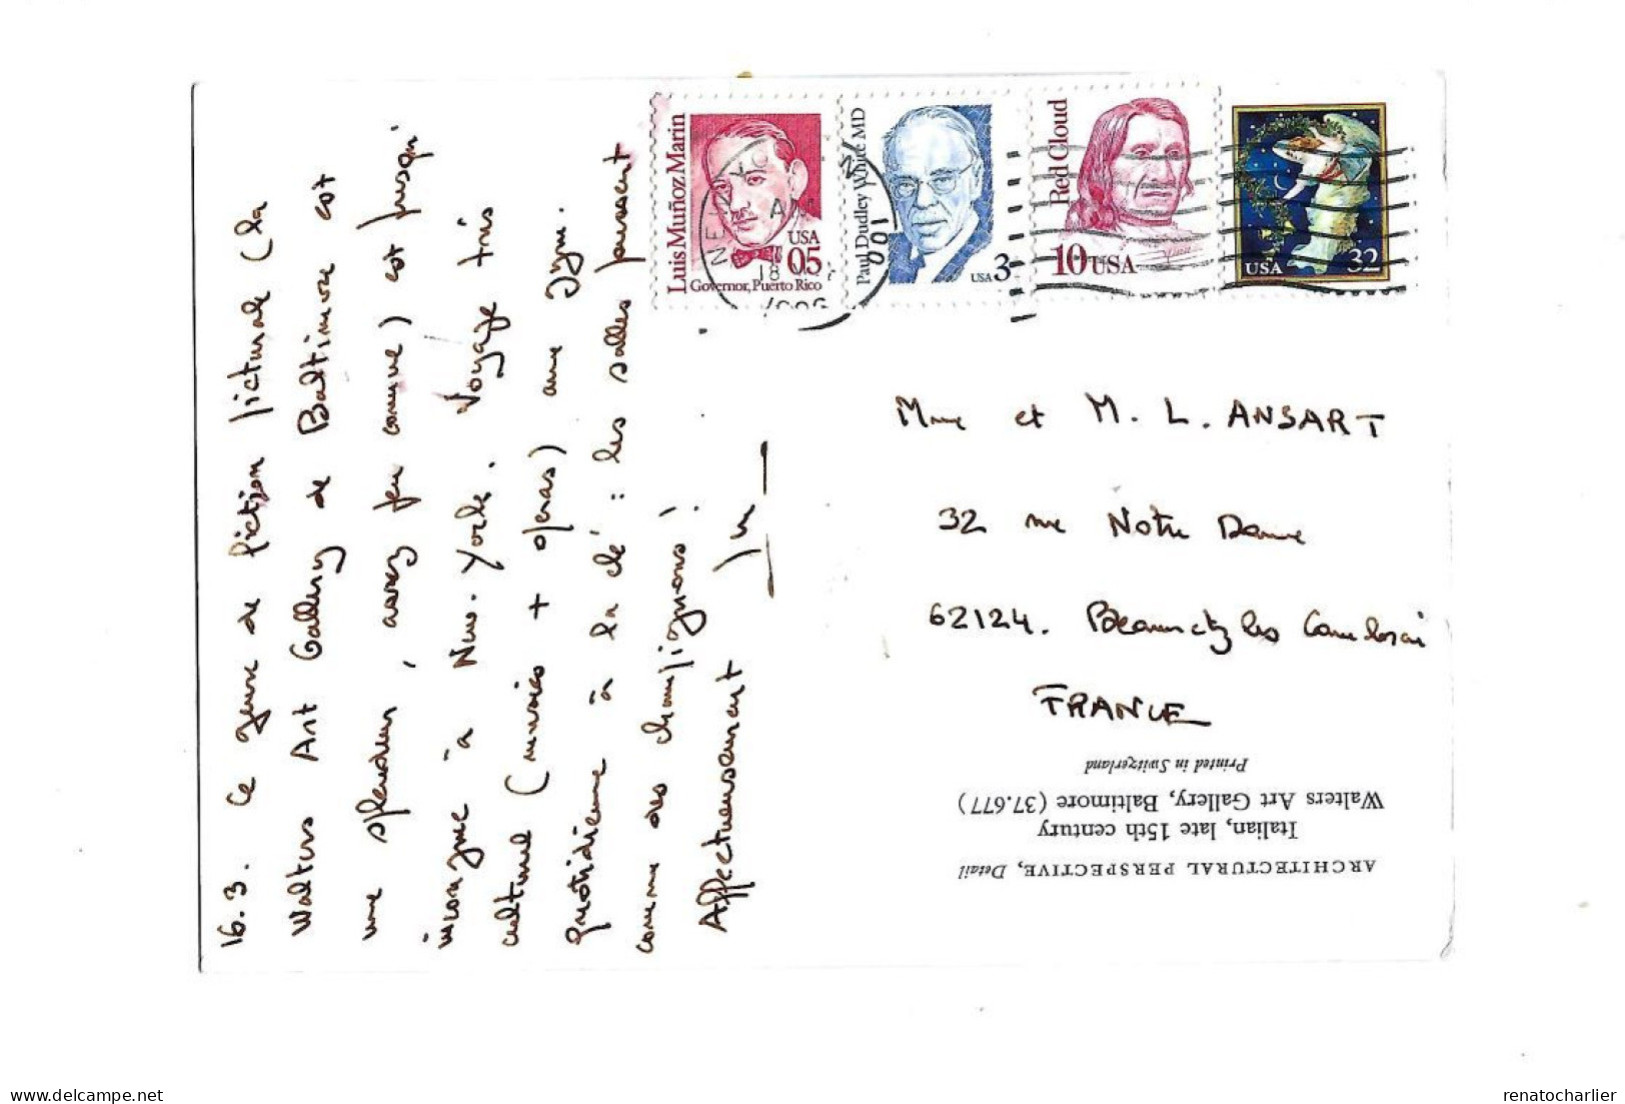 16.3. Ce genre de fiction picturale (la
Walters Art Gallery de Baltimore est
une splendeur, assez peu connue) est jusqu'
à New-York. Voyage très
culturel (musées + opéras) avec
quotidienne à la clé : les salles poussent
comme des champignons !
Affectueusement
Luis Muñoz Marin
Governor, Puerto Rico
USA
05
NEW YO
AM
18
1996
Paul Dudley White MD
USA 3
001
Red Cloud
10 USA
USA 32
Mme et M. L. ANSART
32 rue Notre Dame
62124. Beaumetz les Cambrai
FRANCE
ARCHITECTURAL PERSPECTIVE, Detail
Italian, late 15th century
Walters Art Gallery, Baltimore (37.677)
Printed in Switzerland
renatocharlier